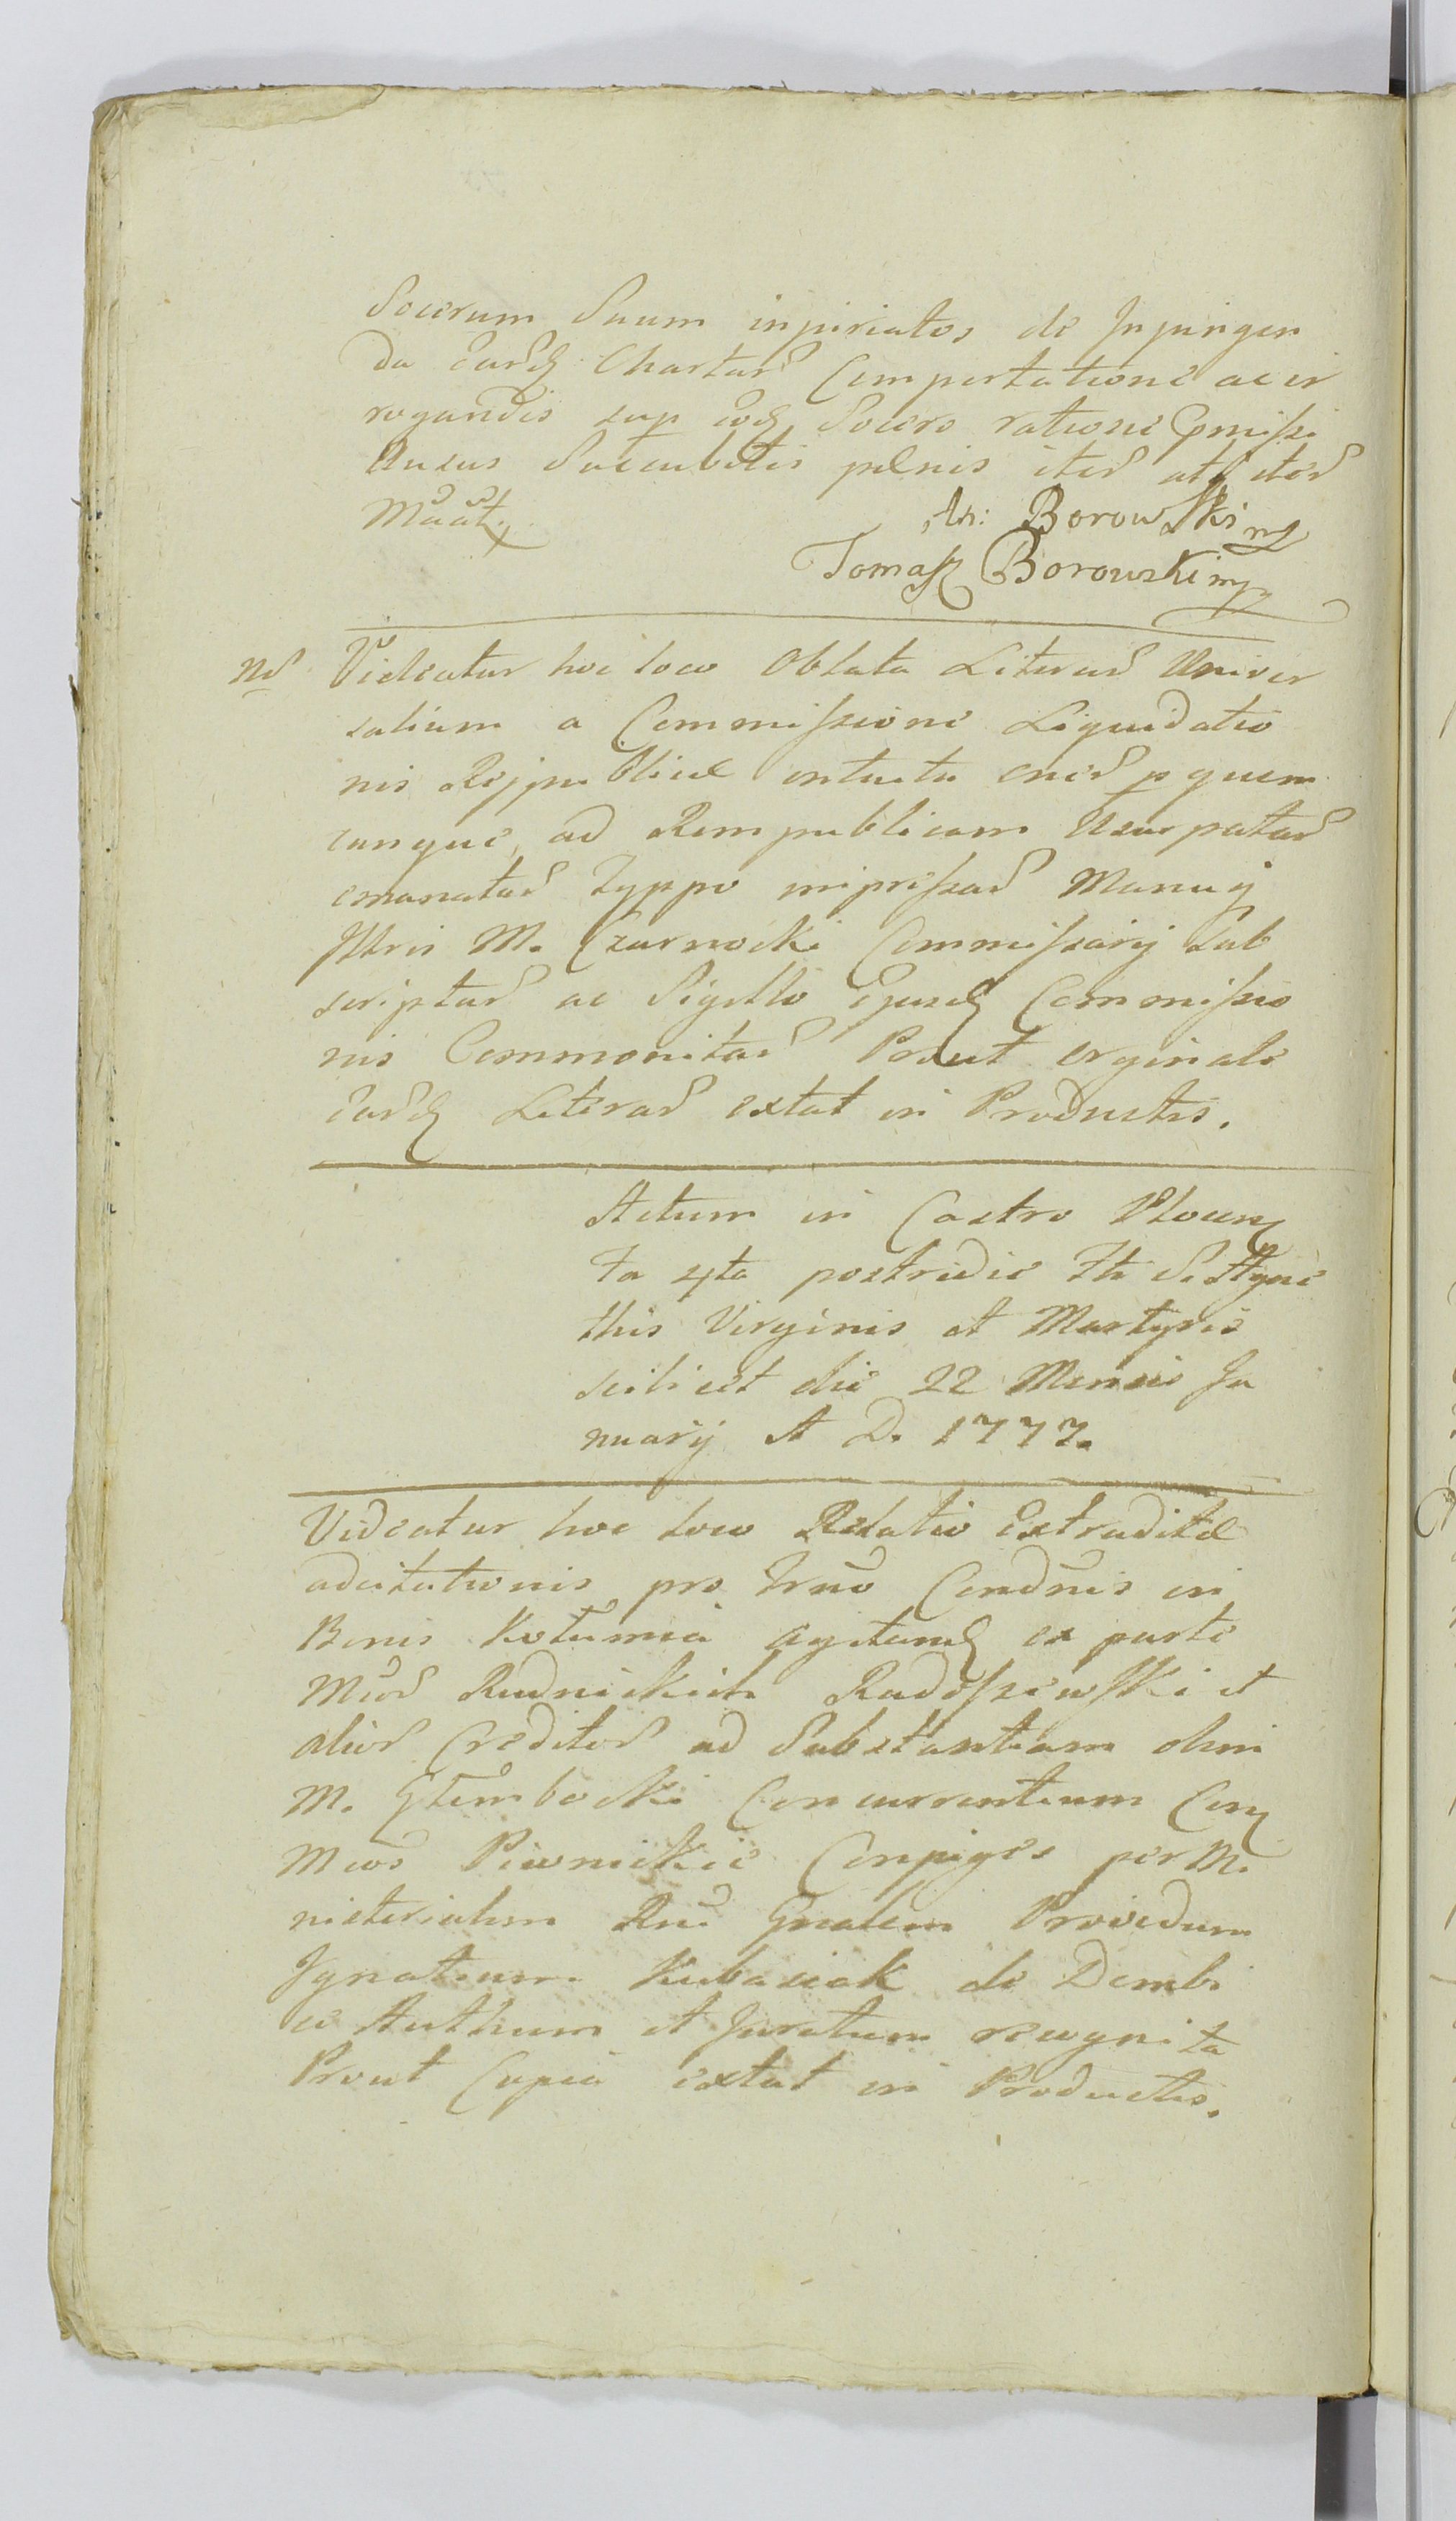 Socerum Suum inpiriatos de Inpingen
da eard Chartar Comportatione ac ir
rogandis sup eod Socero ratione pmissi
Ausus Succubitis pœnis iter atq iter
Muat
St: Borowski mp
Tomasz Borowski mp
Nr Videatur hoc loco Oblata Literar Univer
salium a Commissione Liquidatio
nis Rejpublicæ intuitu oner p quem
cunque, ad Rempublicam Usurpatar
emanatar Typpo impressar Manuq
Illris M. Czarnocki Commissarij Sub
scriptar ac Sigillo Ejusd Commissio
nis Commonitar Prout orginale
eard Literar extat in Productis.
Actum in Castro Plocen
Fa 4ta postridie Fti S. Agne
this Virginis et Martyris
scilicet die 22 Mensis Ja
nuarij A D. 1777.
Videatur hoc loco Relatio Extraditæ
adcitationis pro Trno Condnis in
Bonis Kotunia agitand ex parte
Mcor Rudnickich Radoszewski et
alior Creditor ad Substantiam olim
M. Głembocki Concurrentium Con
Mcos Piwnickie Conjuges per Mi
nisterialem Rni Gnalem Providum
Ignatium Kubasiak de Dembi
ce Authum et Juratum recognita
Prout Copia extat in Productis.